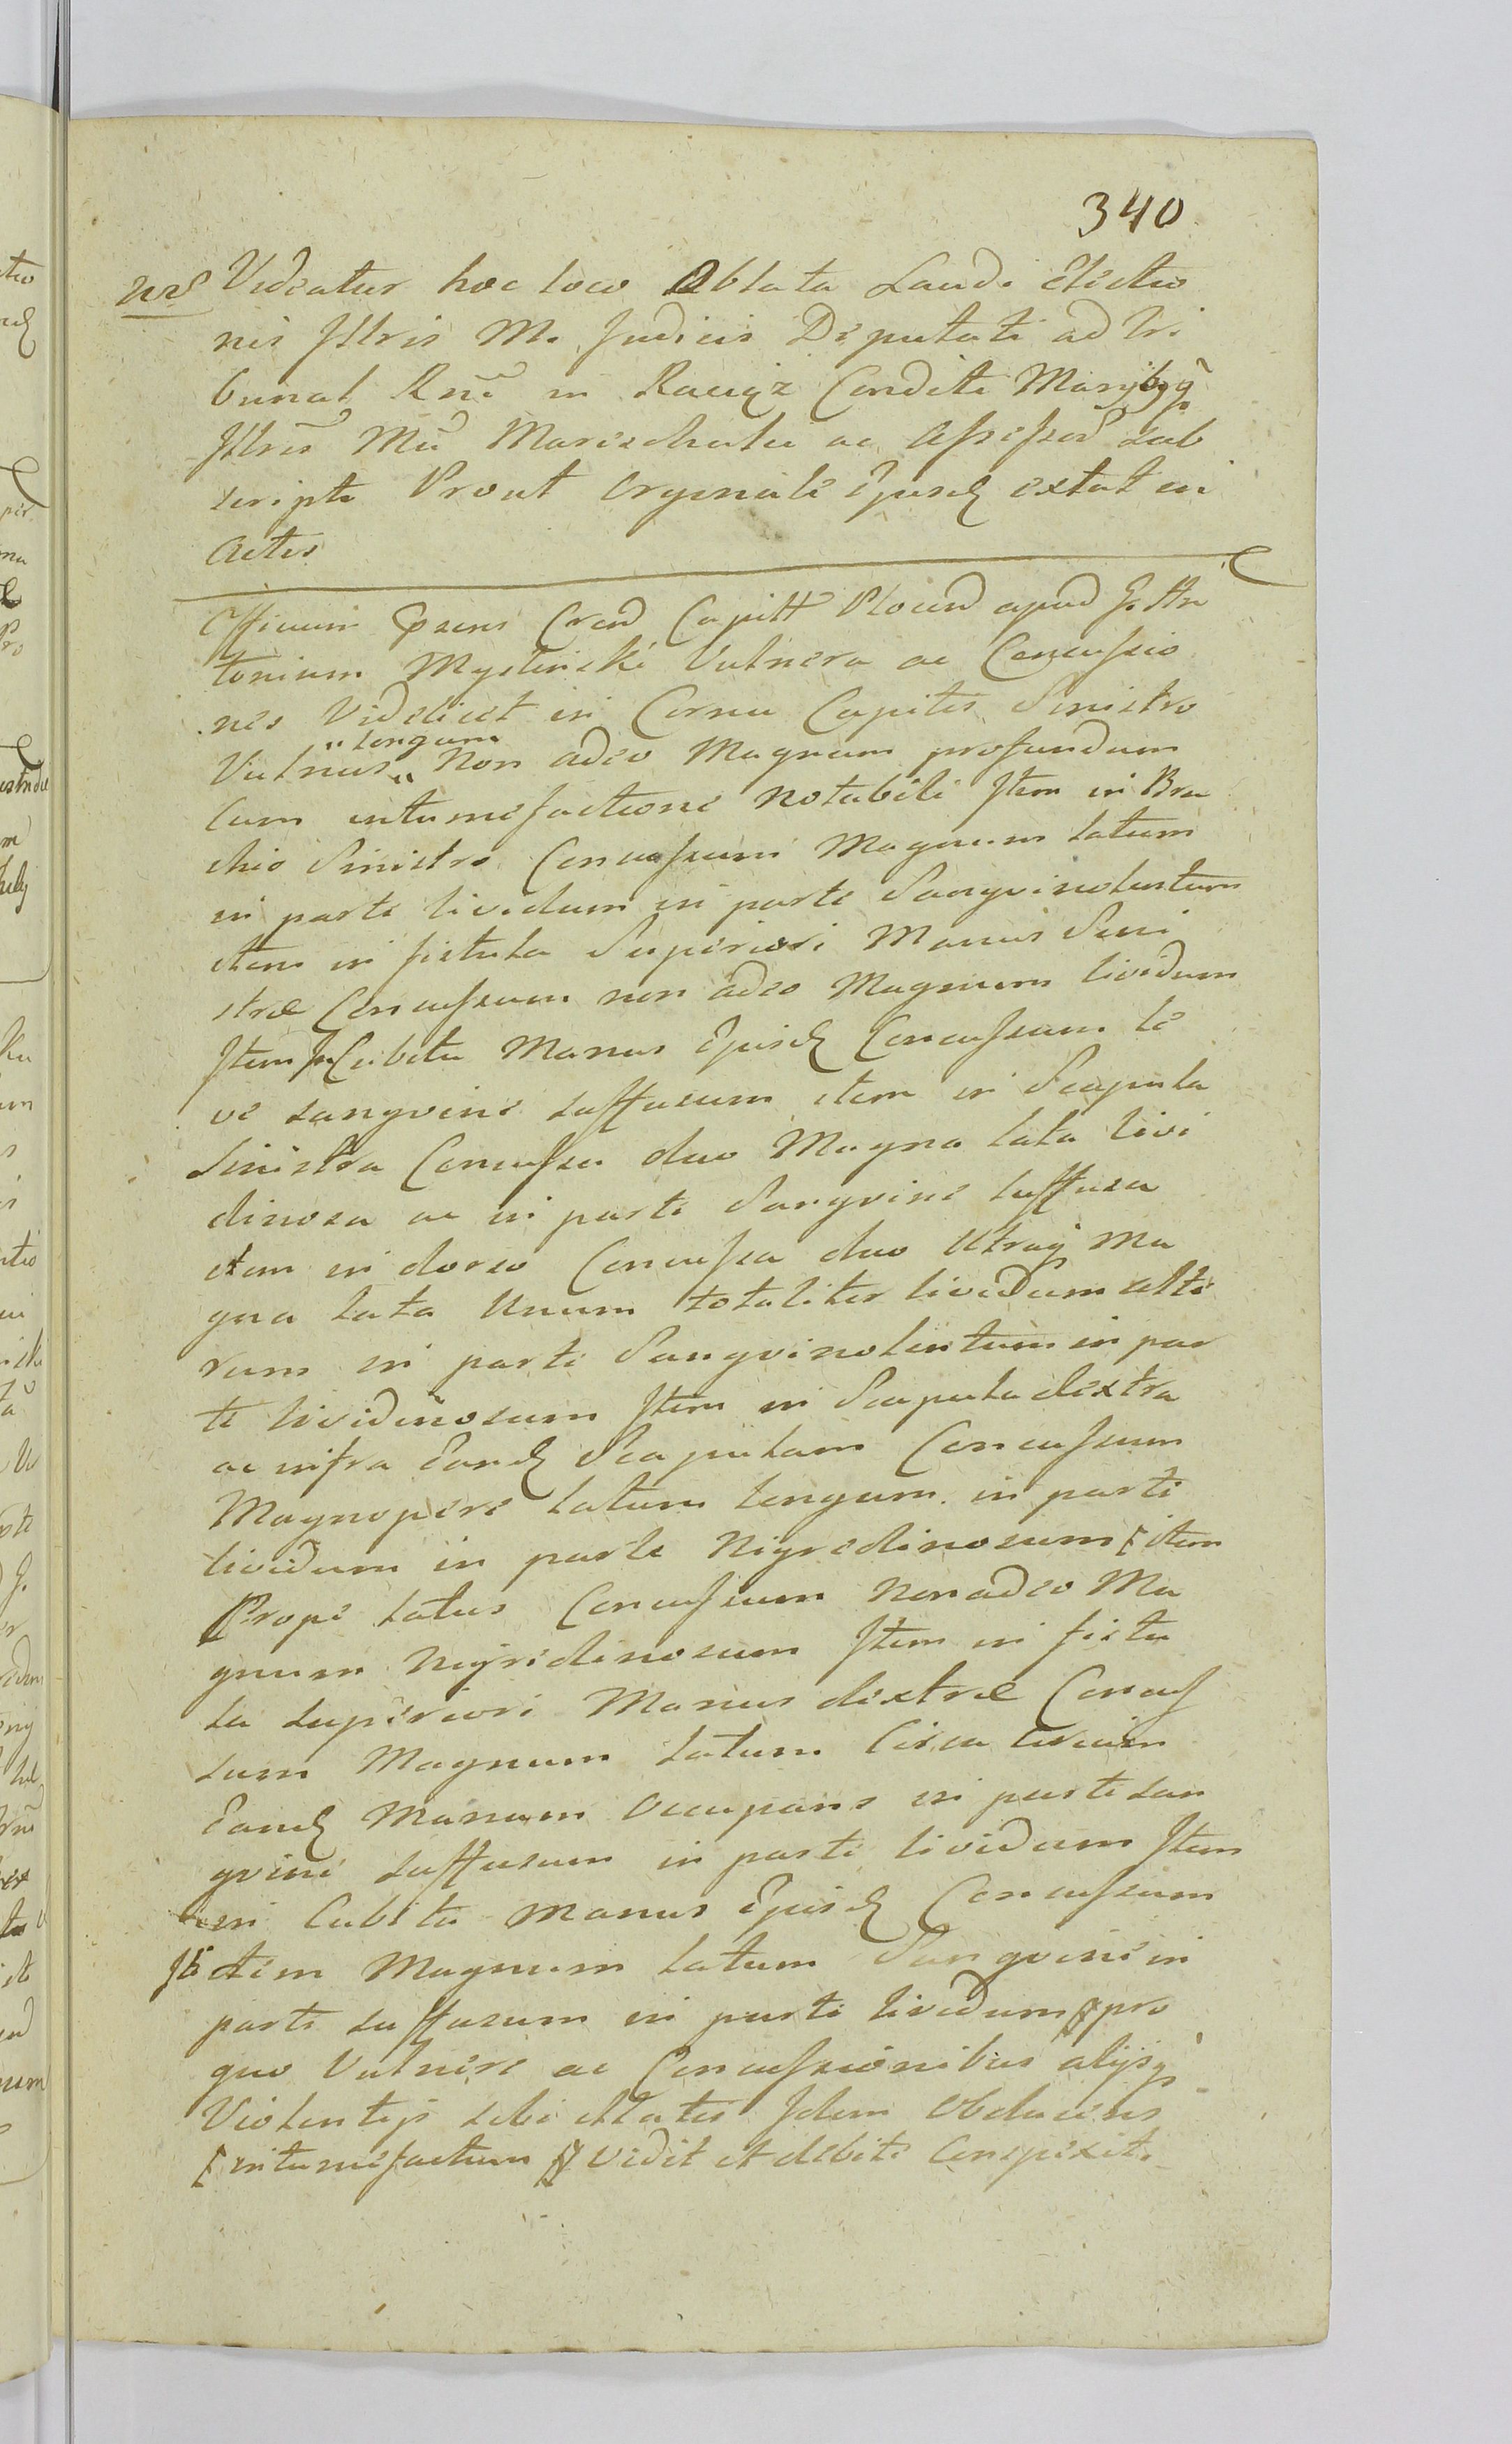 340
Videatur hoc loco Oblata Laudi Electio
nis Illris M. Judicis Deputati ad Tri
bunal Rni in Raciąz Conditi
Illris Mci Mareschalci ac Assessor Sub
scripti Prout Orginale Ejusd extat in
Actis
Officium Prens Crend Capitt Plocen apud G. An
tonium Myslinski Vulnera ac Concussio
nes Videlicet in Cornu Capitis Sinistro
Vulnus „longum „ Non adeo Magnum profundum
Cum intumefactione Notabili Item in Bra
chio Sinistro Concussum Magnum latum
in parte lividum in parte Sangvinolentum
item in fistula Superiori Manus Sini
stræ Concussum non adeo Magnum lividum
Item in Cubitu Manus Ejusd Concussum le
ve sangvine suffusum item in Scapula
Sinistra Concussa duo Magna lata livi
dinosa ac in parte Sangvine suffusa
item in dorso Concussa duo Utraq Ma
gna lata Unum totaliter lividum alte
rum in parte Sangvinolentum in par
te lividinosum Item in Scapula dextra
ac infra Eand Scapulam Concussum
Magnopere latum longum in parte
lividum in parte Nigredinosum item
Prope latus Concussum Non adeo Ma
gnum Nigredinosum Item in fistu
la superiori Manus dextræ Concus
sum Magnum latum Circa
Eand Manum Occupans in parte san
gvine suffusum in parte lividum Item
in Cubitu Manus Ejusd Concussum
itidem Magnum latum Sangvine in
parte suffusum in parte lividum pro
quo Vulnere ac Concussionibus alijsq
Violentijs sibi illatis Idem Obducens
intumefactum Vidit et debite Conspexit.